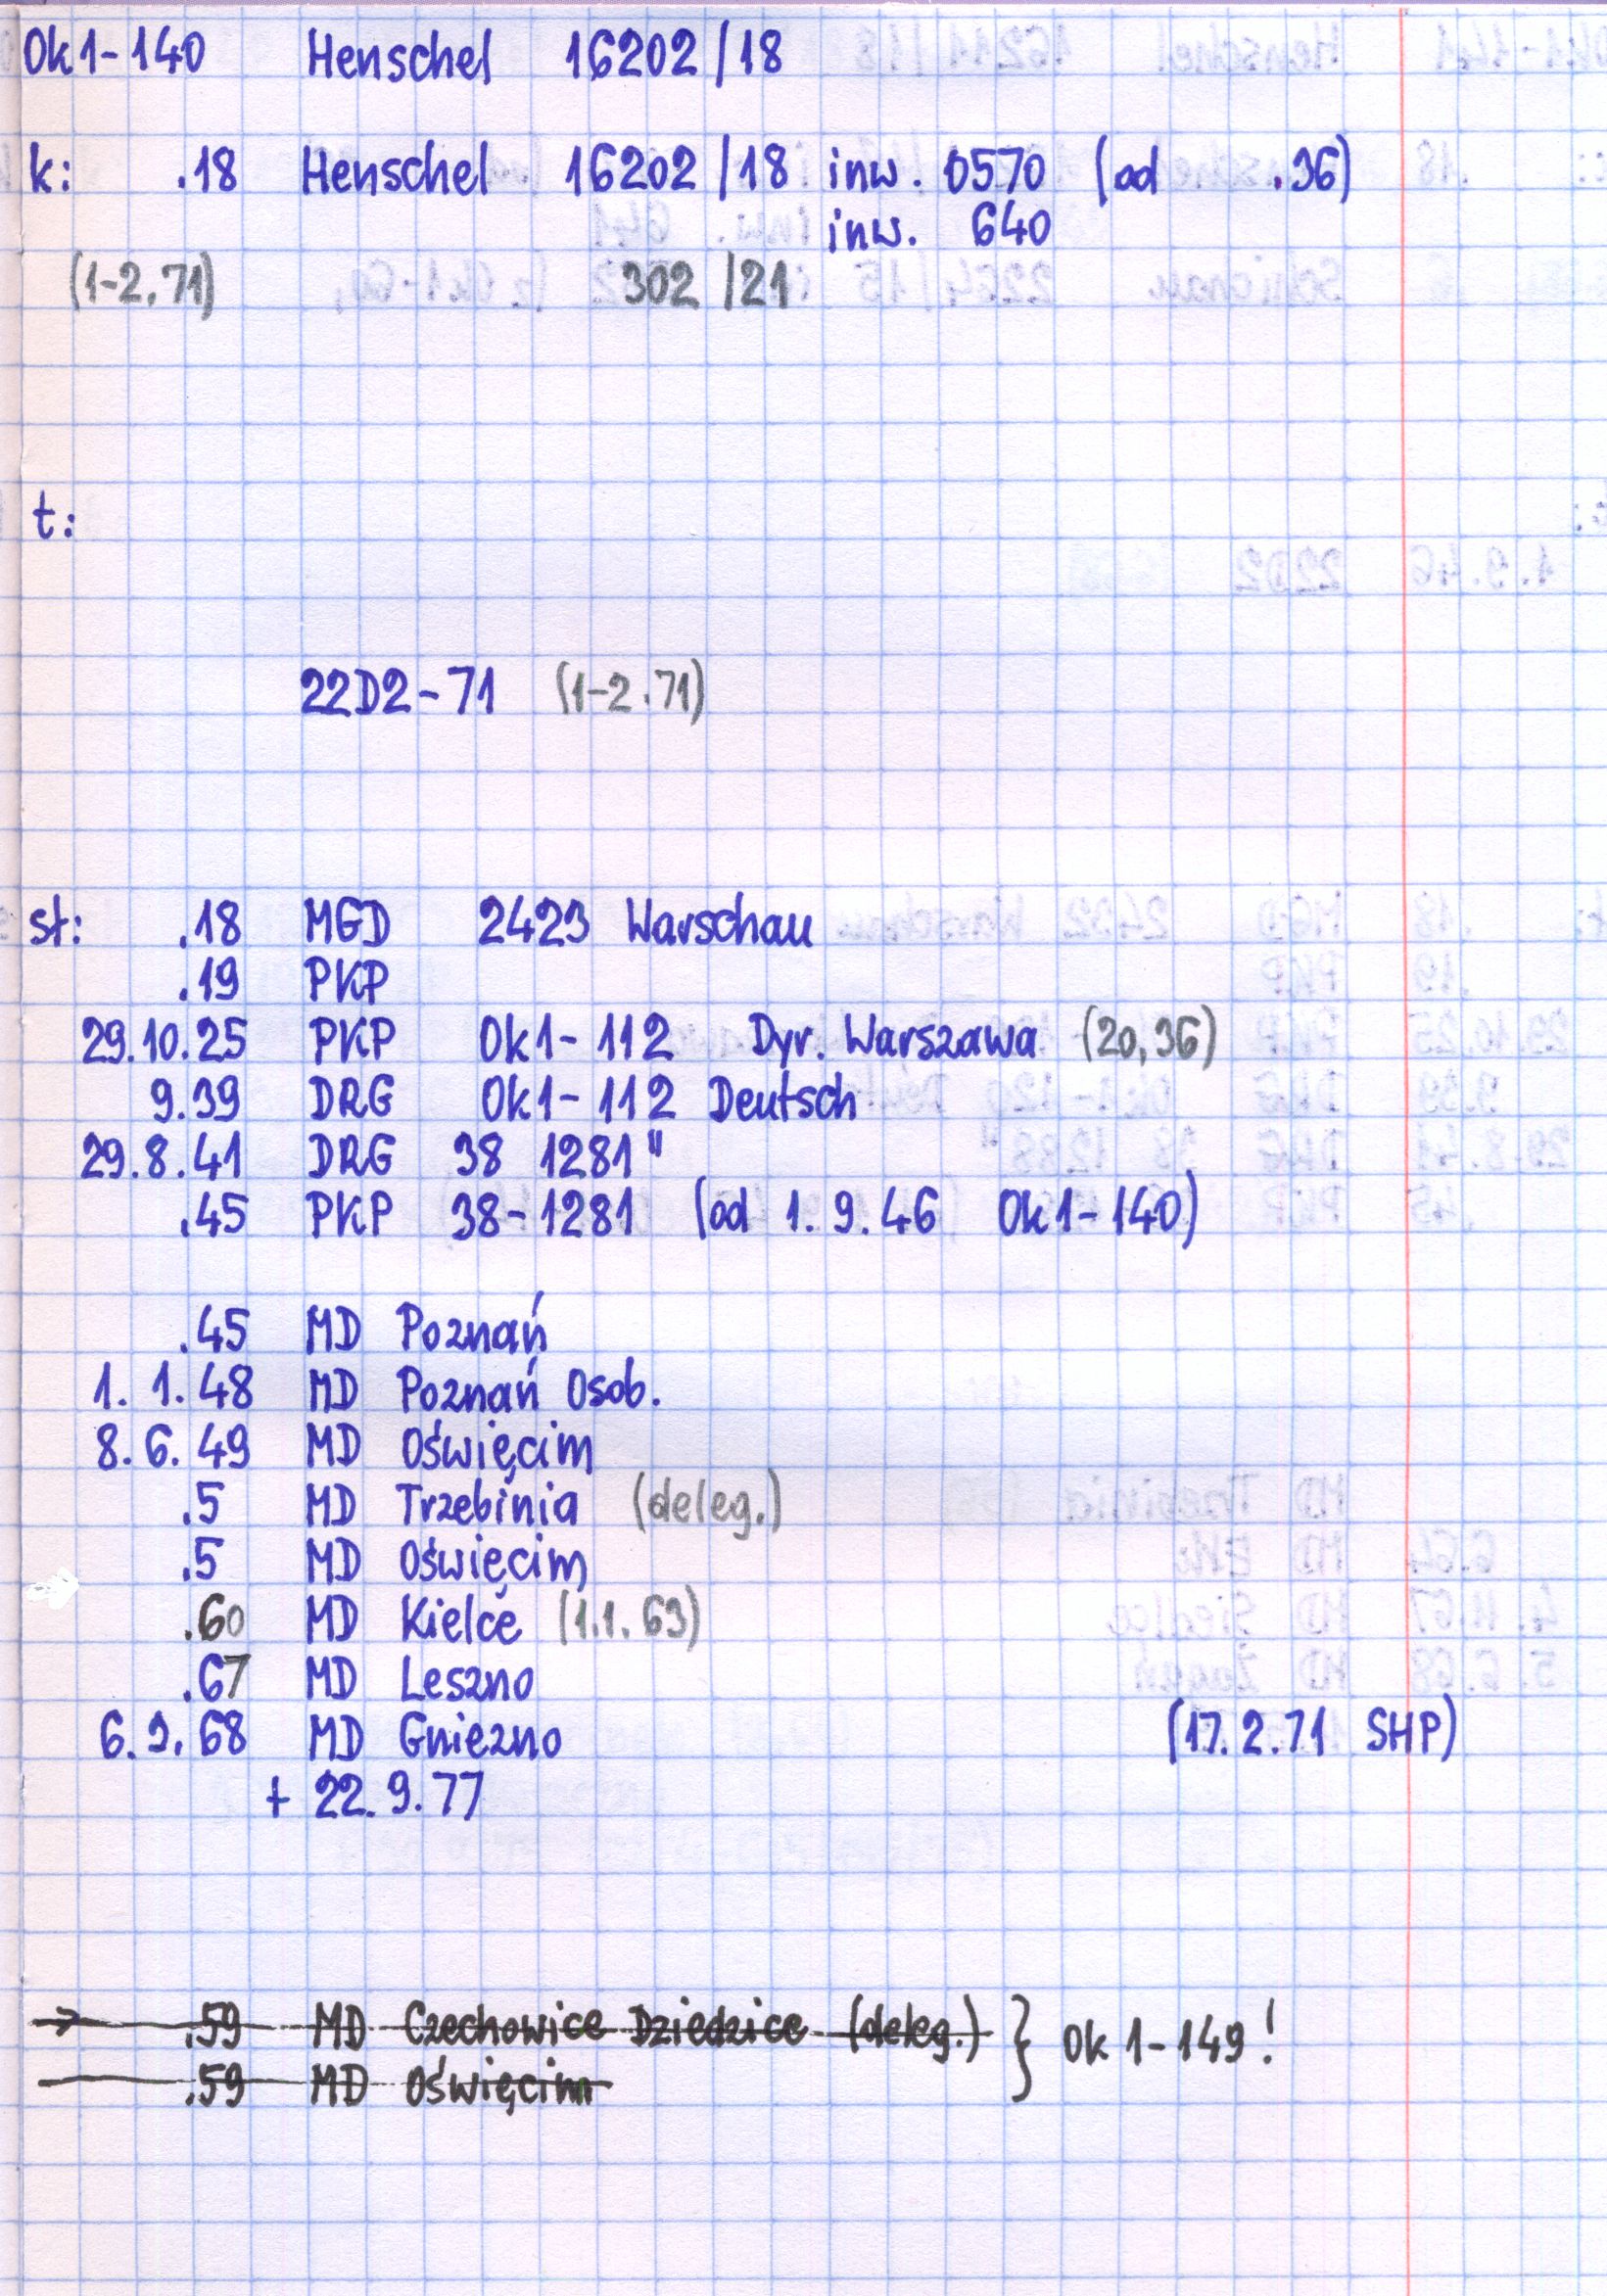 Ok1-140 Henschel 16202/18
k: .18 Henschel 16202/18 inw. 0570 (od .36)
inw. 640
(1-2.71) 302/21
t:
22D2-71 (1-2.71)
st: .18 MGD 2423 Warschau
.19 PKP
29.10.25 PKP Ok1-112 Dyr. Warszawa (20,36)
9.39 DRG Ok1-112 Deutsch
29.8.41 DRG 38 1281"
.45 PKP 38-1281 (od 1.9.46 Ok1-140)
.45 MD Poznań
1.1.48 MD Poznań Osob.
8.6.49 MD Oświęcim
.5 MD Trzebinia (deleg.)
.5 MD Oświęcim
.60 MD Kielce (1.1.63)
.67 MD Leszno
6.9.68 MD Gniezno (17.2.71 SHP)
+ 22.9.77
→ .59 MD Czechowice Dziedzice (deleg.) } Ok1-149!
.59 MD Oświęcim